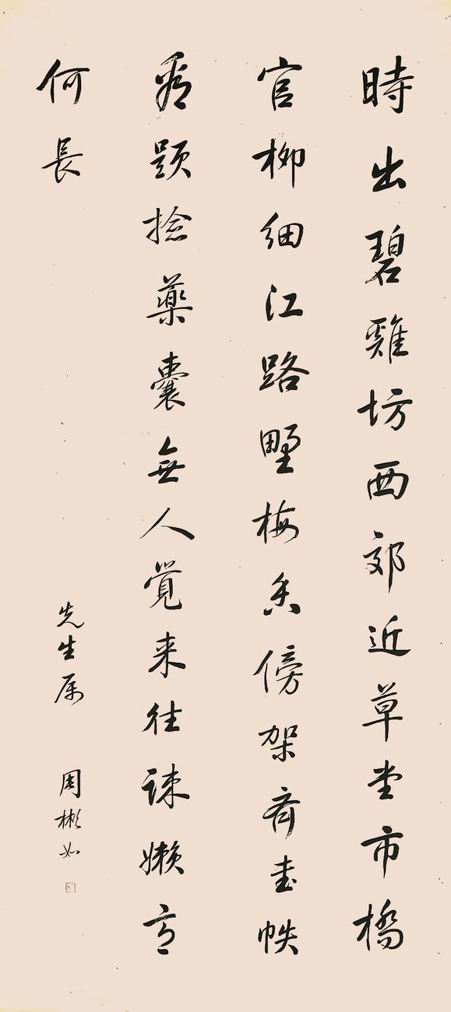 時出碧雞坊西郊近草堂市橋
官柳細江路墅梅香傍架齊書帙
看題捡藥囊無人覺来往疎嬾意
何長
先生属 周彬如